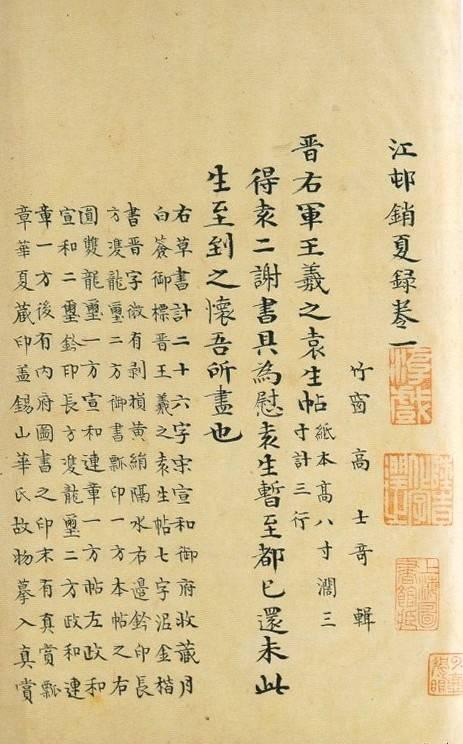 江邨銷夏録卷一
竹窗高士竒輯
晋右軍王羲之袁生帖紙本髙八寸濶三
寸計三行
得袁二謝書具為慰袁生暫至都已還未此
生至到之懷吾所盡也
右草書計二十六字宋宣和御府收藏月
白簽御標晋王羲之袁生帖七字泥金楷
書晋字微有剥損黄絹隔水右邉鈐印長
方雙龍璽二方御書瓢印一方本帖之右
圓雙龍璽一方宣和連章一方帖左政和
宣和二璽鈐印長方雙龍璽二方政和連
章一方後有内府圖書之印末有真賞瓢
章華夏蔵印盖錫山華氏故物摹入真賞
上海圖書館藏